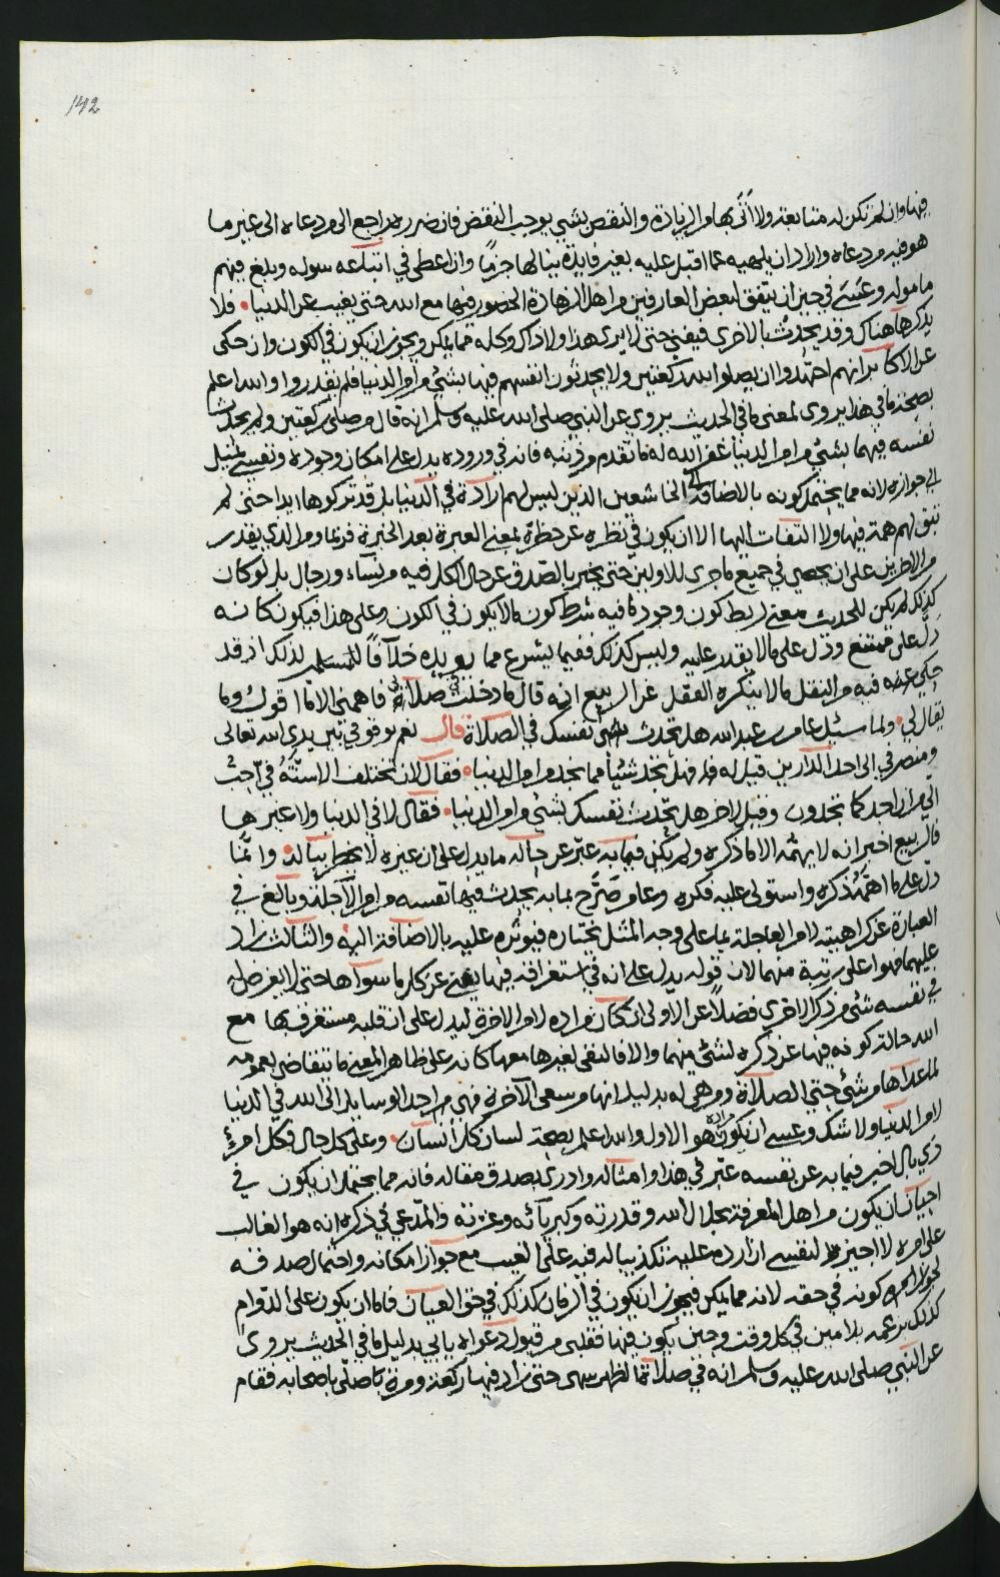 142
فيها وان لم تكن له متابعة ولا اتى بها والزيادة والنقص بشي يوجب النقض فان ضرره راجع الى من دعاه الى غير ما
هو فيه من دعاه واراد ان يلهيه عما اقبل عليه بغير فايدة ينالها جزما وان اعطى في اتباعه سوله وبلغ فيهم
ماموله وعسى في حين ان يتفق لبعض العارفين من اهل الزهادة الحضور فيها مع الله حتى يغيب عن الدنيا فلا
يذكرها هناك وقد يحدث بالاخرى فيفنى حتى لا يرى هذا ولا ذاك وكله مما يمكن ويجوز ان يكون في الكون وان حكى
عن الاكابر انهم اجتهدوا ان يصلوا لله ركعتين ولا يحدثون انفسهم فيها بشيء من امر الدنيا فلم يقدروا والله اعلم
بصحة ما في هذا يروى لمعنى ما في الحديث يروى عن النبي صلى الله عليه وسلم انه قال من صلى ركعتين ولم يحدث
نفسه فيهما بشيء من امر الدنيا غفر الله له ما تقدم من ذنبه فانه في وروده يدل على امكان وجوده ونفسي تميل
الى جوازه لانه مما يحتمل كونه بالاضافة الى الخاشعين الذين ليس لهم ارادة في الدنيا بل قد تركوها ابدا حتى لم
تبق لهم همة فيها ولا التفات اليها الا ان يكون في نظره عن خطرة لمعنى العبرة بعد الخبرة فربما ومن الذي يقدر
من الاخرين على ان يحصي في جميع ما جرى للاولين حتى يخبر بالصدق عن حال الكل فيه من نساء ورجال بل لو كان
كذلك لم يكن للحديث معنى لربط كون وجود ما فيه شرط كون ما لا يكون في الكون وعلى هذا فيكون كانه
دل على ممتنع ودل على ما لا يقدر عليه وليس كذلك ففيما يشرع مما يؤيده خلافا للمسلم لذلك اذ قد
حكي عنه فيه من النقل ما لا ينكره العقل عن الربيع انه قال ما دخلت في صلاة فاهمني الا ما اقول وما
يقال لي ولما سئل عامر بن عبد الله هل تحدث نفسك في الصلاة قال نعم بوقوفي بين يدي الله تعالى
ومنصرفي الى احد الدارين قيل له فهل تجد شيئا مما نجد من امر الدنيا فقال لان تختلف الاسنة في احب
الي من ان اجد كما تجدون وقيل لاخر هل تحدث نفسك بشيء من امر الدنيا فقال لا في الدنيا ولا غيرها
فالربيع اخبر انه لا يهمه الا ما ذكره ولم يكن فيما به عبر عن حاله ما يدل على ان غيره لا يخطر بباله وانما
دل على ما اهمه ذكره واستولى عليه فكره وعامر صرح بما به يحدث فيها نفسه من امر الآجلة وبالغ في
العبارة عن كراهيته لامر العاجلة بما على وجه المثل يختاره فيوثره عليه بالاضافة اليه والثالث زاد
عليهما فهو اعلى رتبة منهما لان قوله يدل على انه في استغراقه فيها يفنى عن كل ما سواها حتى لا يعرض له
في نفسه شيء من ذكر الاخرى فضلا عن الاولى ان كان مراده لامر الاخرة ليدل على ان قلبه مستغرق بها مع
الله حالة كونه فيها عن ذكره لشيء منهما والا فالنفي لغيرها معها كانه على ظاهر المعنى ما تتقاضى بعمومه
لما عداها من شيء حتى الصلاة وهي له بدليل انها من سعي الآخرة فهي من احد الوسايل الى الله في الدنيا
لامر الدنيا ولا شك وعسى ان يكون مراده هو الاول والله اعلم بصحة لسان كل انسان وعلى كل حال فكل امرئ
ذي بال اخبر فيما به عن نفسه عبر في هذا وامثاله وادري بصدق مقاله فانه مما يحتمل ان يكون في
احيان ان يكون من اهل المعرفة بجلال الله وقدرته وكبريائه وعزته والمدعي في ذكره انه هو الغالب
على امره لا اجيز لنفسي ان ارده عليه تكذيبا له فيه على الغيب مع جواز امكانه واحتمال صدقه
لجواز كونه في حقه لانه مما يمكن فيجوز ان يكون في الزمان كذلك في حق العيان فاما ان يكون على الدوام
كذلك بزعمه بلا مين في كل وقت وحين يكون فيها فقلبي من قبول دعواه يابى بدليل ما في الحديث يروى
عن النبي صلى الله عليه وسلم انه في صلاة الظهر سهى حتى زاد فيها ركعة ومرة ما صلى باصحابه فقام